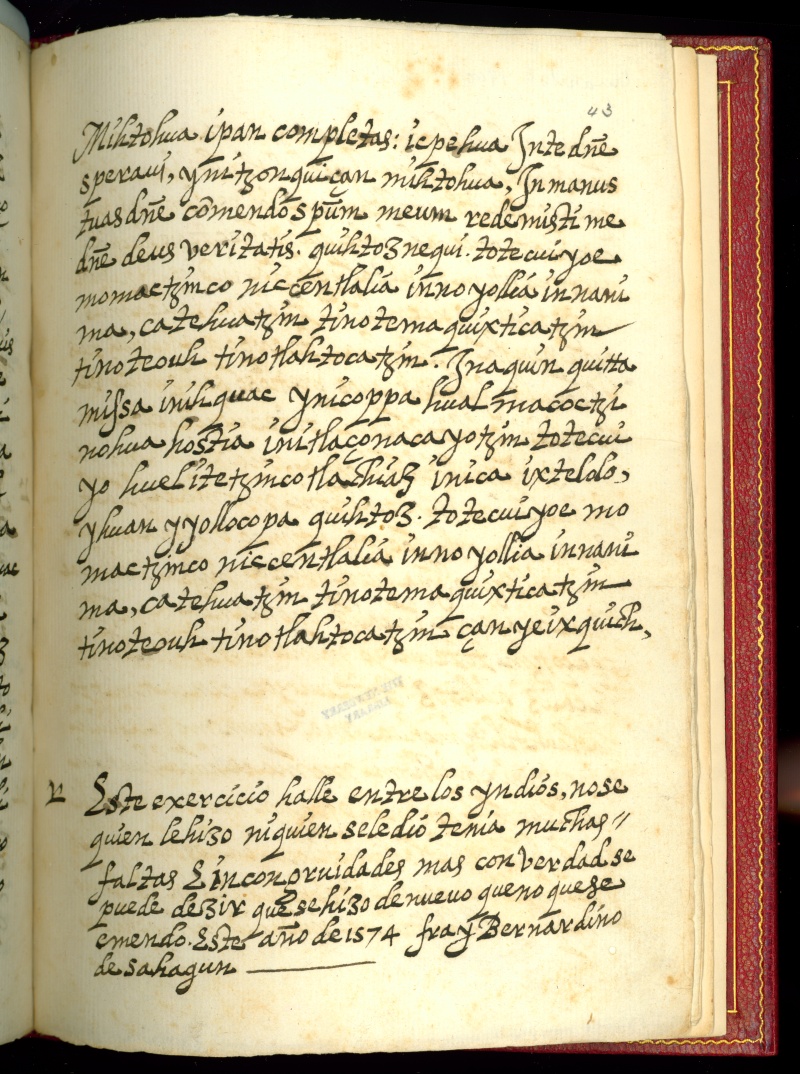 43
Mihtohua ipan completas: ic pehua In te dn̄e
speraui, ynitzonquiçan mihtohua, In manus
tuas dn̄e cōmendo spūm meum redemisti me
dn̄e deus veritatis. quihtoznequi. totecuiyoe
momactzinco niccentlalia in noyollia in nani
ma, ca tehuatzin tinotemaquixticatzin
tinoteouh tinotlahtocatzin. In aquin quitta
missa inihquac ynicoppa hualmacoctzi
nohua hostia initlaçonacayotzin totecui
yo huel itetzinco tlachiaz inica ixtelolo,
yhuan yyollocopa quihtoz. totecuiyoe mo
mactzinco niccentlalia in noyollia in nani
ma, ca tehuatzin tinotemaquixticatzin
tinoteouh tinotlahtocatzin çan yeixquich,
THE NEWBERRY
LIBRARY
Este exercicio halle entre los yndios, no se
quien le hizo ni quien se le dio tenia muchas //
faltas E incongruidades mas con verdad se
puede dezir que se hizo de nueuo que no que se
emendo. Este año de 1574 fray Bernardino
de Sahagun